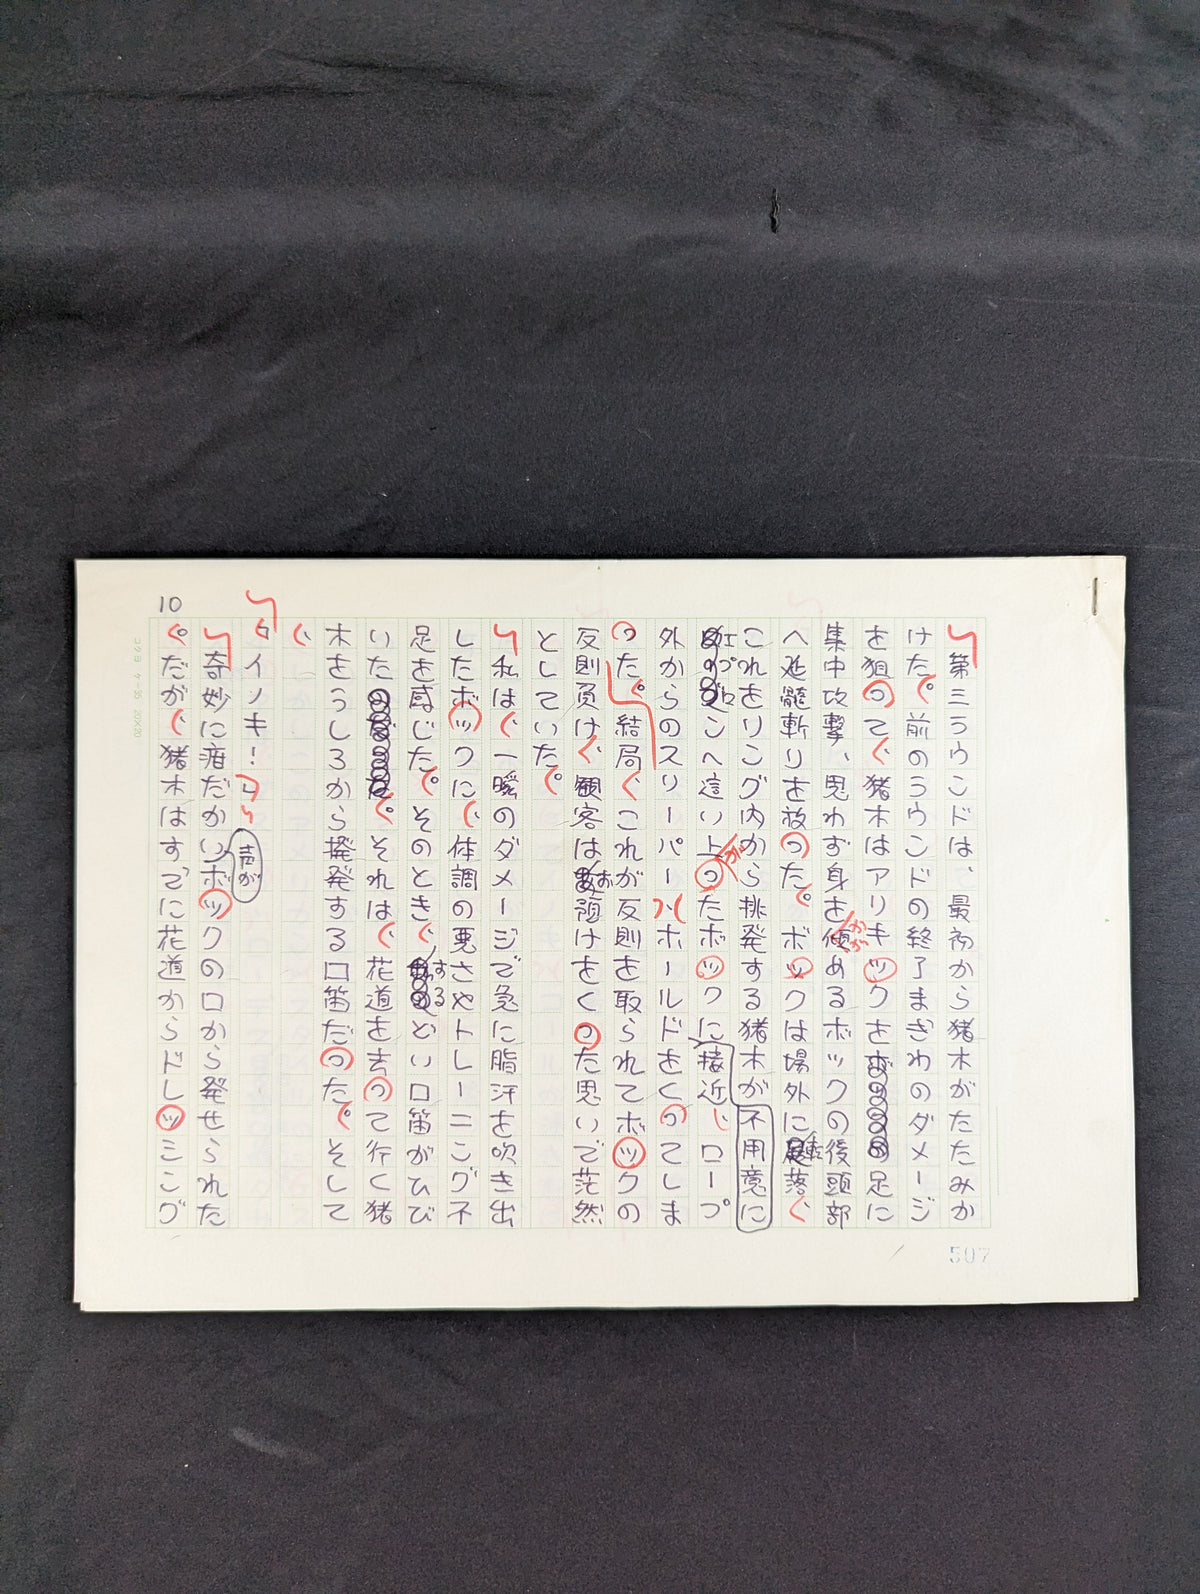 第三ラウンドは、最初から猪木がたたみか
けた。前のラウンドの終了まぎわのダメージ
を狙って、猪木はアリキックを足に
集中攻撃、思わず身を傾めるボックの後頭部
へ延髄斬りを放った。ボックは場外に転落、
これをリング内から挑発する猪木が不用意に
エプロンへ這い上がったボックに接近、ロープ
外からのスリーパー・ホールドをくってしま
った。結局、これが反則を取られてボックの
反則負け、観客はお預けをくった思いで茫然
としていた。
私は、一瞬のダメージで急に脂汗を吹き出
したボックに、体調の悪さやトレーニング不
足を感じた。そのとき、するどい口笛がひび
いた。それは、花道を去って行く猪
木をうしろから挑発する口笛だった。そして
、
「イノキ!」
奇妙に疳だかい声がボックの口から発せられた
。だが、猪木はすでに花道からドレッシング
10
507
コクヨ ケ-35 20×20